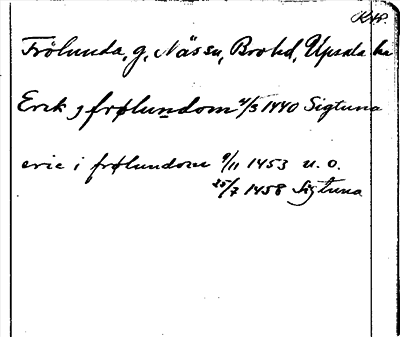 Frölunda, g, Nässu, Brohd, Upsala
Erik j frølundom 4/3 1440 Sigtuna
eric i frølundom 9/11 1453 u. o.
25/7 1458 Sigtuna